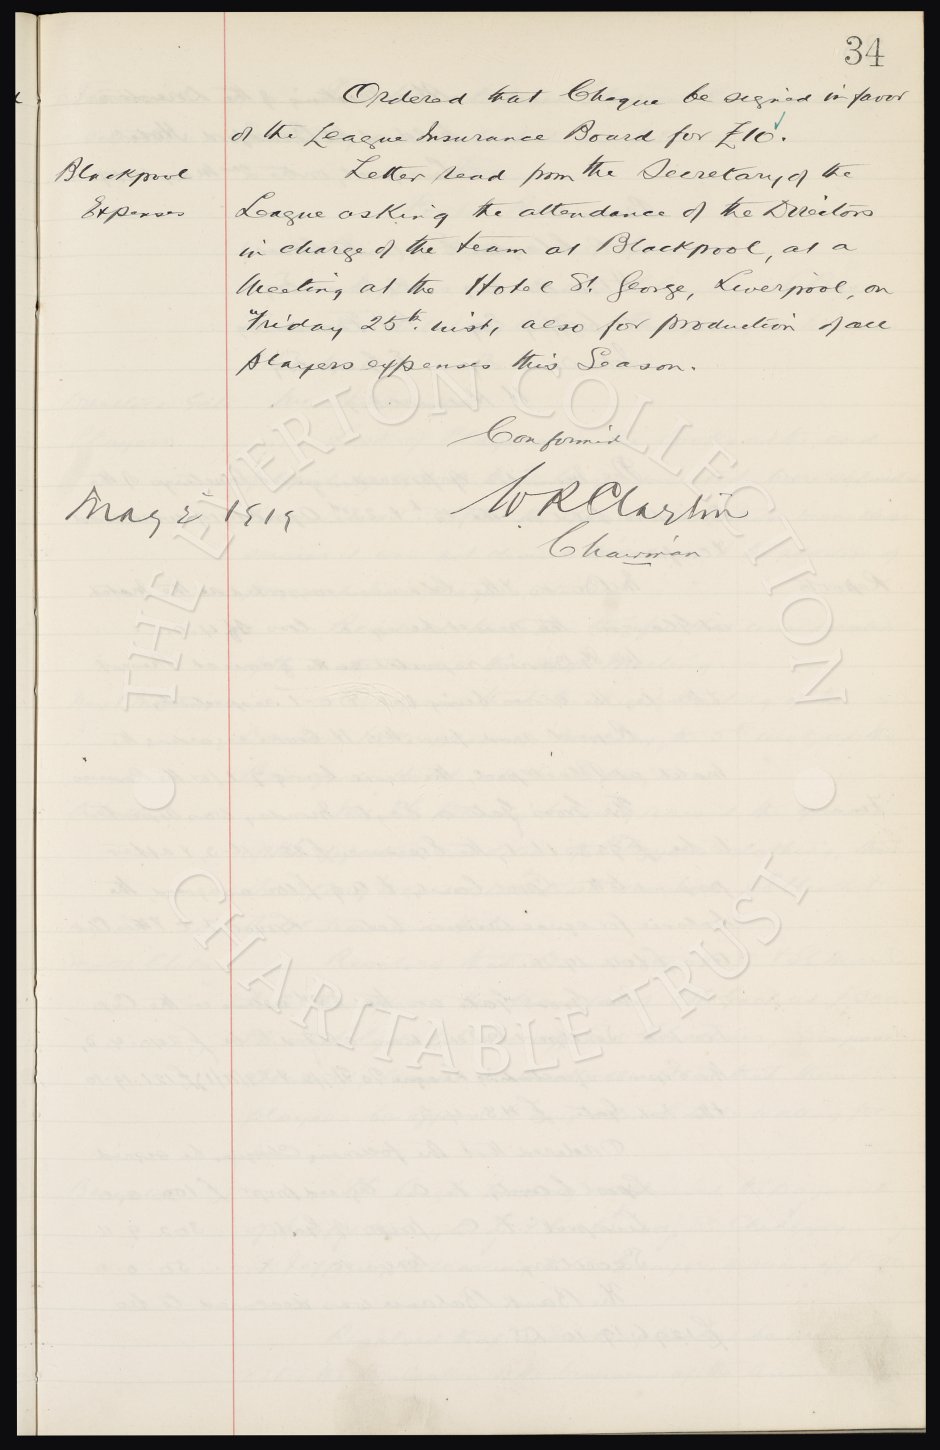 34
Ordered that Cheque be signed in favor
of the League Insurance Board for £10.
Blackpool
Expenses
Letter read from the Secretary of the
League asking the attendance of the Directors
in charge of the team at Blackpool, at a
Meeting at the Hotel St. George, Liverpool, on
Friday 25th. inst, also for production of all
players expenses this Season.
Confirmed
May 2 1919
W. R. Clayton
Chairman
THE EVERTON COLLECTION
CHARITABLE TRUST